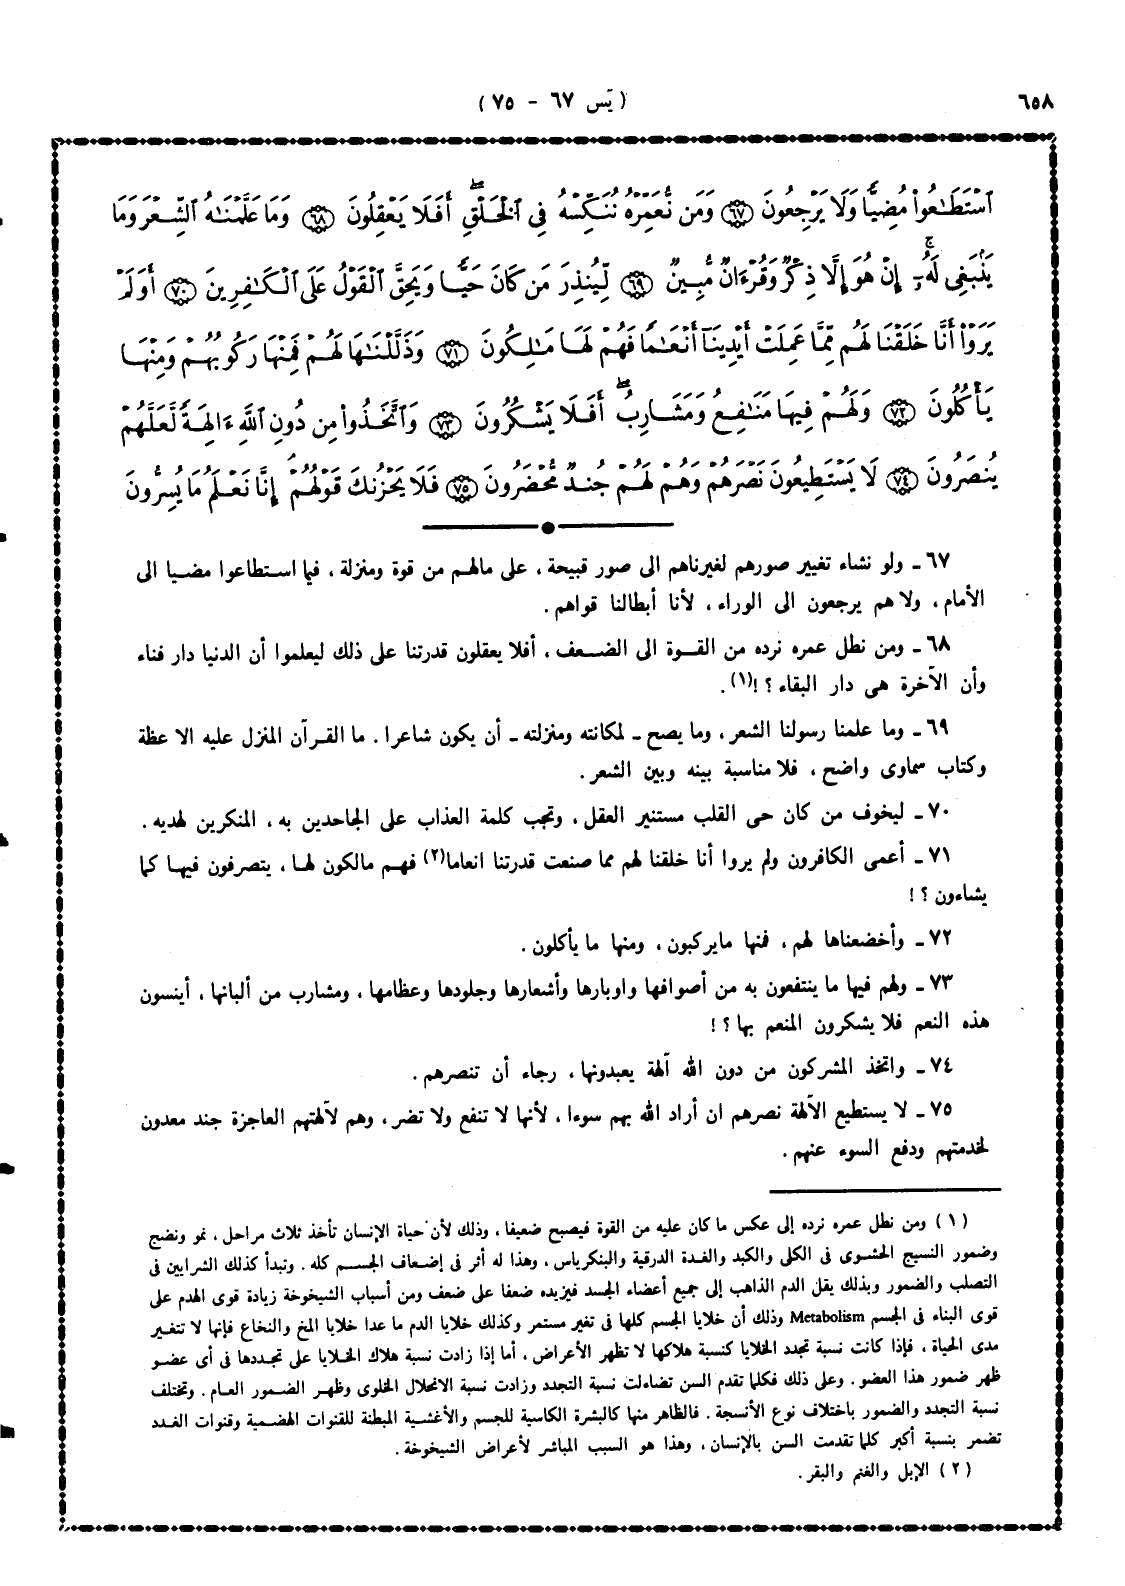 ٦٥٨
( يٓس ٦٧ - ٧٥ )
ٱسۡتَطَٰعُواْ مُضِيّٗا وَلَا يَرۡجِعُونَ ٦٧ وَمَن نُّعَمِّرۡهُ نُنَكِّسۡهُ فِي ٱلۡخَلۡقِۖ أَفَلَا يَعۡقِلُونَ ٦٨ وَمَا عَلَّمۡنَٰهُ ٱلشِّعۡرَ وَمَا
يَنۢبَغِي لَهُۥٓۚ إِنۡ هُوَ إِلَّا ذِكۡرٞ وَقُرۡءَانٞ مُّبِينٞ ٦٩ لِّيُنذِرَ مَن كَانَ حَيّٗا وَيَحِقَّ ٱلۡقَوۡلُ عَلَى ٱلۡكَٰفِرِينَ ٧٠ أَوَلَمۡ
يَرَوۡاْ أَنَّا خَلَقۡنَا لَهُم مِّمَّا عَمِلَتۡ أَيۡدِينَآ أَنۡعَٰمٗا فَهُمۡ لَهَا مَٰلِكُونَ ٧١ وَذَلَّلۡنَٰهَا لَهُمۡ فَمِنۡهَا رَكُوبُهُمۡ وَمِنۡهَا
يَأۡكُلُونَ ٧٢ وَلَهُمۡ فِيهَا مَنَٰفِعُ وَمَشَارِبُۖ أَفَلَا يَشۡكُرُونَ ٧٣ وَٱتَّخَذُواْ مِن دُونِ ٱللَّهِ ءَالِهَةٗ لَّعَلَّهُمۡ
يُنصَرُونَ ٧٤ لَا يَسۡتَطِيعُونَ نَصۡرَهُمۡ وَهُمۡ لَهُمۡ جُندٞ مُّحۡضَرُونَ ٧٥ فَلَا يَحۡزُنكَ قَوۡلُهُمۡۘ إِنَّا نَعۡلَمُ مَا يُسِرُّونَ
٦٧ ـ ولو نشاء تغيير صورهم لغيرناهم الى صور قبيحة ، على مالهم من قوة ومنزلة ، فما استطاعوا مضيا الى
الأمام ، ولا هم يرجعون الى الوراء ، لأنا أبطالنا قواهم .
٦٨ ـ ومن نطل عمره نرده من القوة الى الضعف ، أفلا يعقلون قدرتنا على ذلك ليعلموا أن الدنيا دار فناء
وأن الآخرة هى دار البقاء ؟ !(١) .
٦٩ ـ وما علمنا رسولنا الشعر ، وما يصح ـ لمكانته ومنزلته ـ أن يكون شاعرا . ما القرآن المنزل عليه الا عظة
وكتاب سماوى واضح ، فلا مناسبة بينه وبين الشعر .
٧٠ ـ ليخوف من كان حى القلب مستنير العقل ، وتجب كلمة العذاب على الجاحدين به ، المنكرين لهديه .
٧١ ـ أعمى الكافرون ولم يروا أنا خلقنا لهم مما صنعت قدرتنا انعاما(٢) فهم مالكون لها ، يتصرفون فيها كما
يشاءون ؟ !
٧٢ ـ وأخضعناها لهم ، فمنها مايركبون ، ومنها ما يأكلون .
٧٣ ـ ولهم فيها ما ينتفعون به من أصوافها واوبارها وأشعارها وجلودها وعظامها ، ومشارب من ألبانها ، أينسون
هذه النعم فلا يشكرون المنعم بها ؟ !
٧٤ ـ واتخذ المشركون من دون الله آلهة يعبدونها ، رجاء أن تنصرهم .
٧٥ ـ لا يستطيع الآلهة نصرهم ان أراد الله بهم سوءا ، لأنها لا تنفع ولا تضر ، وهم لآلهتهم العاجزة جند معدون
لخدمتهم ودفع السوء عنهم .
( ١ ) ومن نطل عمره نرده إلى عكس ما كان عليه من القوة فيصبح ضعيفا ، وذلك لأن حياة الإنسان تأخذ ثلاث مراحل ، نمو ونضج
وضمور النسيج الحشوى فى الكلى والكبد والغدة الدرقية والبنكرياس ، وهذا له أثر فى إضعاف الجسم كله . وتبدأ كذلك الشرايين فى
التصلب والضمور وبذلك يقل الدم الذاهب إلى جميع أعضاء الجسد فيزيده ضعفا على ضعف ومن أسباب الشيخوخة زيادة قوى الهدم على
قوى البناء فى الجسم Metabolism وذلك أن خلايا الجسم كلها فى تغير مستمر وكذلك خلايا الدم ما عدا خلايا المخ والنخاع فإنها لا تتغير
مدى الحياة ، فإذا كانت نسبة تجدد الخلايا كنسبة هلاكها لا تظهر الأعراض ، أما إذا زادت نسبة هلاك الخلايا على تجددها فى أى عضو
ظهر ضمور هذا العضو . وعلى ذلك فكلما تقدم السن تضاءلت نسبة التجدد وزادت نسبة الانحلال الخلوى وظهر الضمور العام . وتختلف
نسبة التجدد والضمور باختلاف نوع الأنسجة . فالظاهر منها كالبشرة الكاسية للجسم والأغشية المبطنة للقنوات الهضمية وقنوات الغدد
تضمر بنسبة أكبر كلما تقدمت السن بالإنسان ، وهذا هو السبب المباشر لأعراض الشيخوخة .
( ٢ ) الإبل والغنم والبقر .